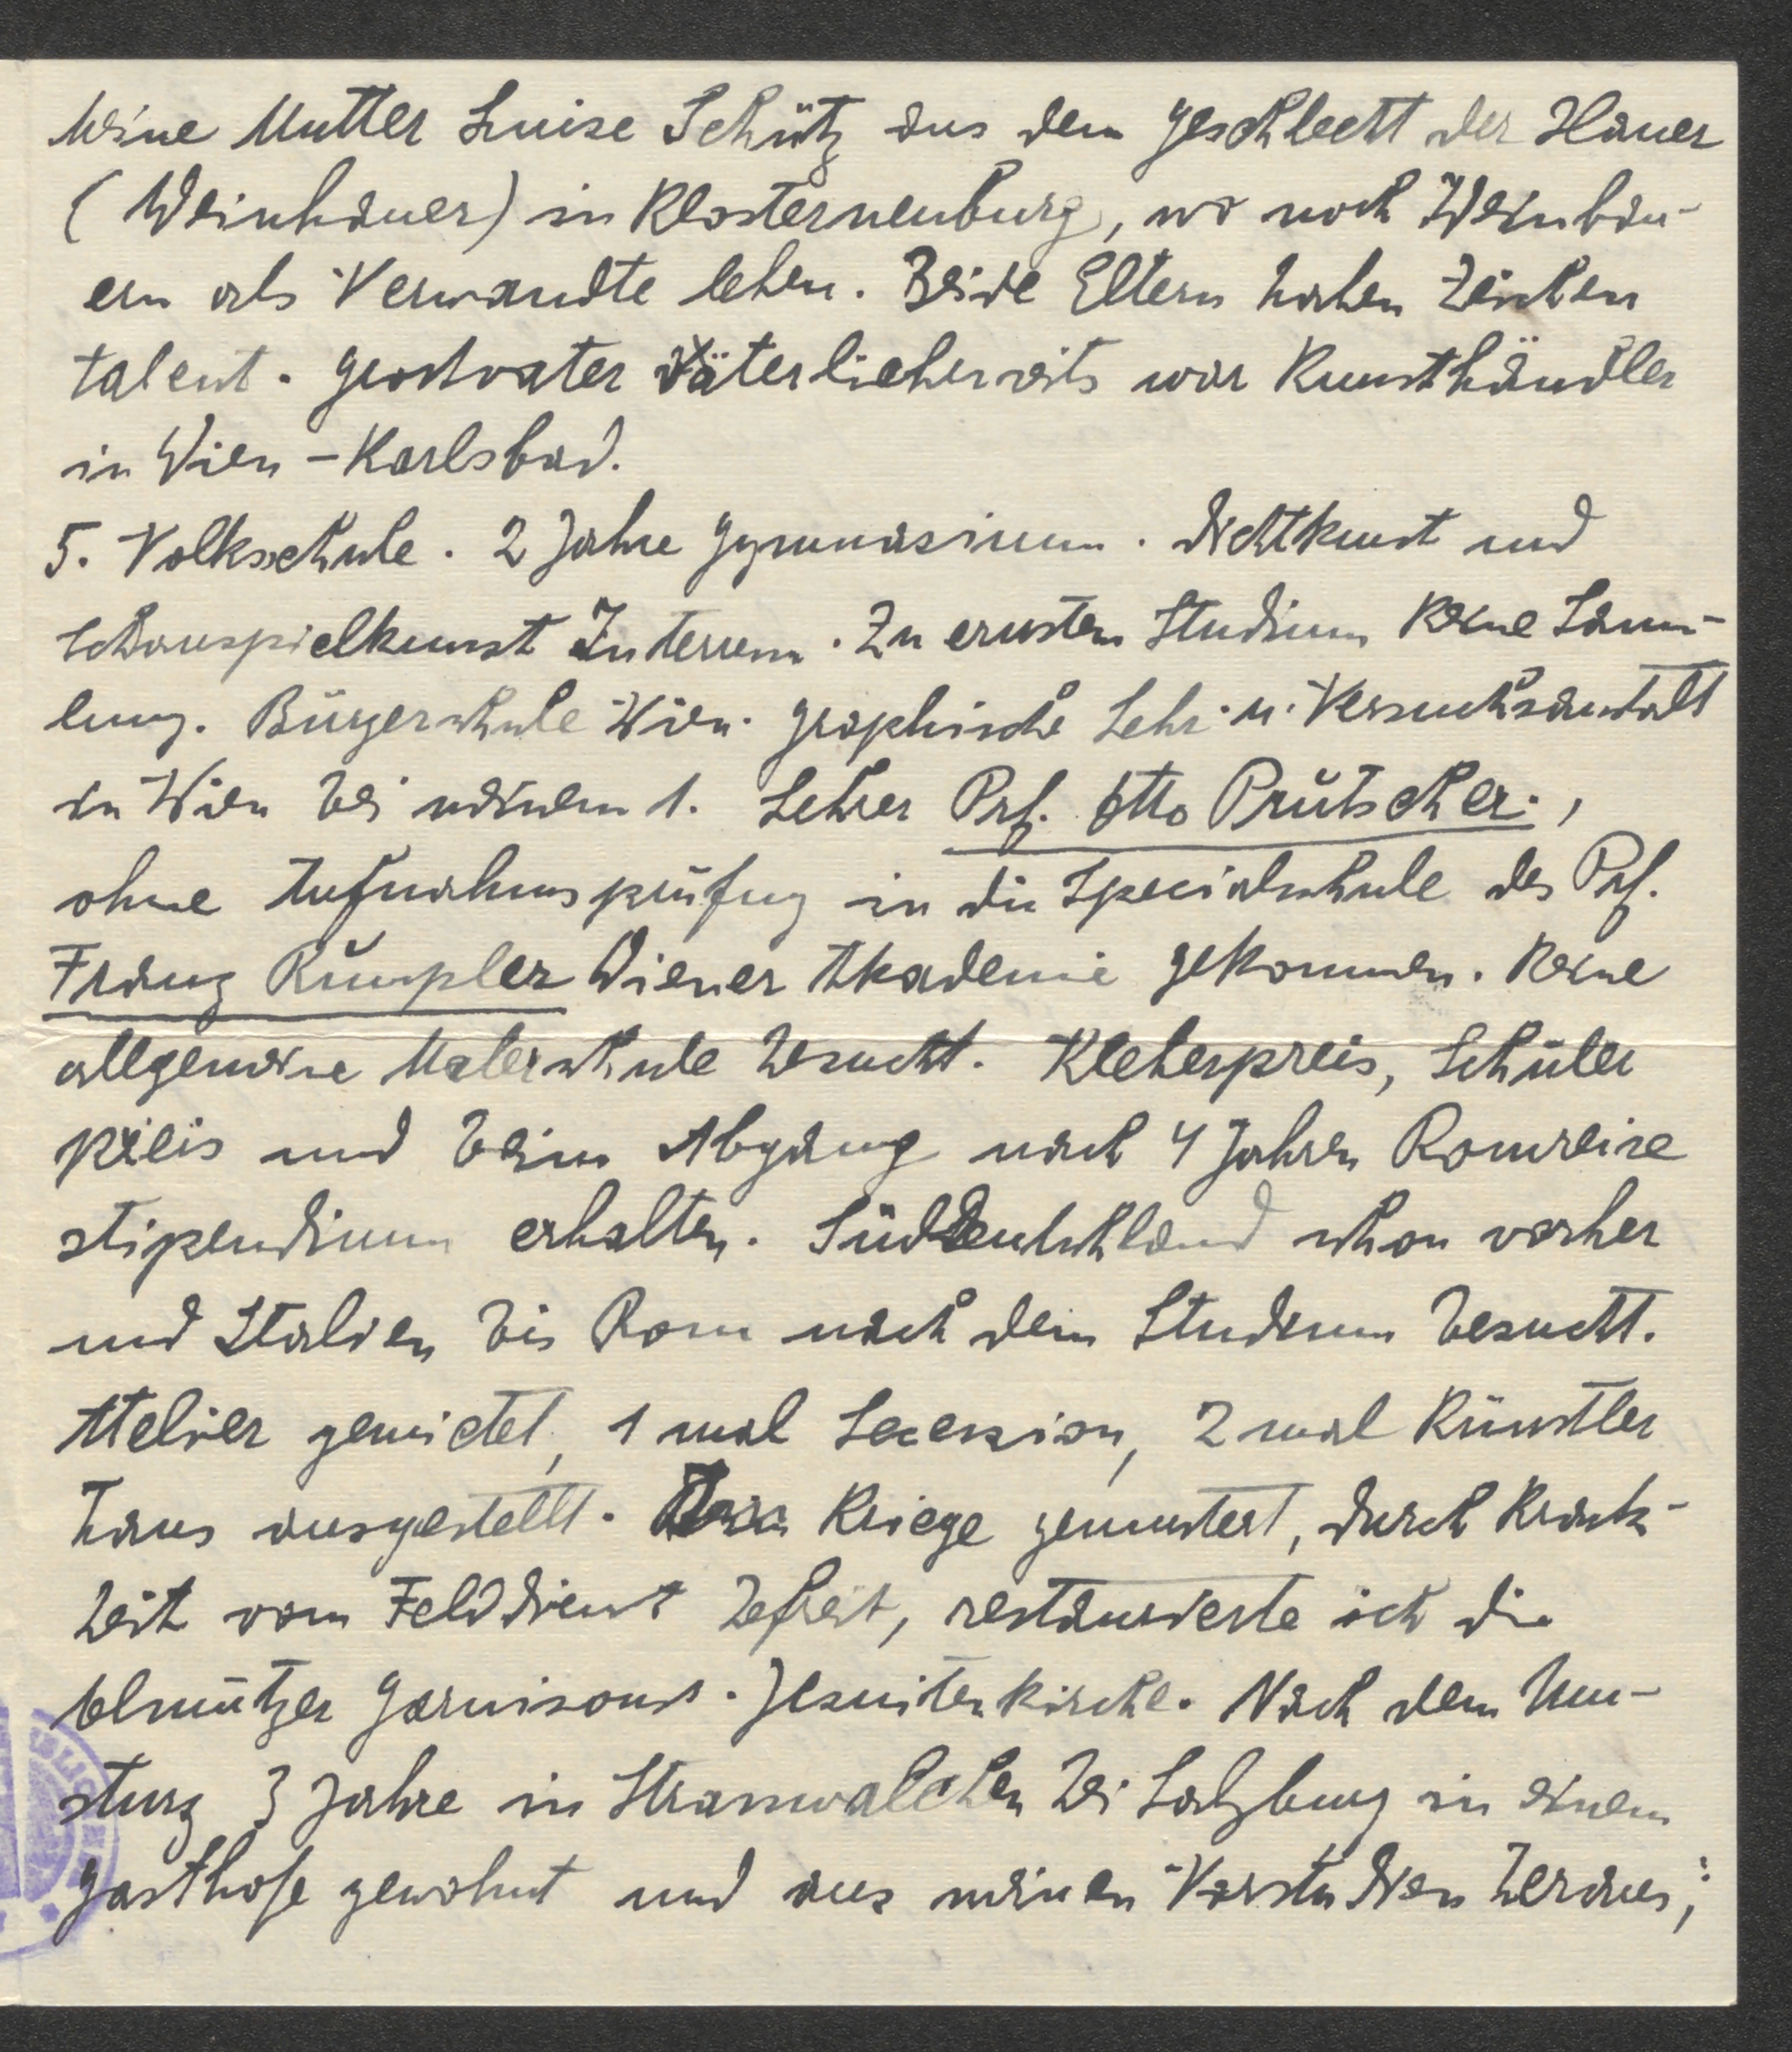 Meine Mutter Luise Schütz aus dem Geschlecht der Hauer
(Weinhauer) in Klosterneuburg, wo noch Weinbau-
ern als Verwandte leben. Beide Eltern haben Zeichen
talent. Grosvater väterlicherseits war Kunsthändler
in Wien – Karlsbad.
5. Volksschule. 2 Jahre Gymnasium. Dichtkunst und
Schauspielkunst Interessen. Zu ernsten Studium keine Samm-
lung. Bürgerschule Wien. Graphische Lehr- u. Versuchsanstalt
in Wien bei meinem 1. Lehrer Prf. Otto Prutscher.,
ohne Aufnahmsprüfung in die Specialschule des Prf.
Franz Rumpler Wiener Akademie gekommen. Keine
allgemeine Malerschule besucht. Kleberpreis, Schüler
preis und beim Abgang nach 4 Jahren Romreise
stipendium erhalten. Süddeutschland schon vorher
und Italien bis Rom nach dem Studium besucht.
Atelier gemietet, 1 mal Secession, 2 mal Künstler
haus ausgestellt. Kriege gemustert, durch Krank-
heit vom Felddienst befreit, restaurierte ich die
Olmützer Garnisons-Jesuitenkirche. Nach dem Um-
sturz 3 Jahre in Strasswalchen bei Salzburg in einem
Gasthofe gewohnt und aus meinen Vorstudien heraus;